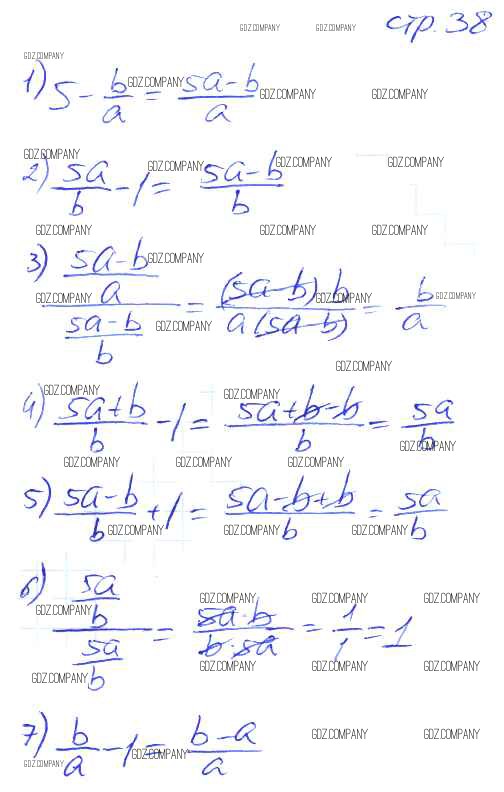 GDZ.COMPANY GDZ.COMPANY стр. 38
GDZ.COMPANY
1) 5 - b/a = (5a - b)/a
GDZ.COMPANY GDZ.COMPANY GDZ.COMPANY
GDZ.COMPANY GDZ.COMPANY GDZ.COMPANY GDZ.COMPANY
2) 5a/b - 1 = (5a - b)/b
GDZ.COMPANY GDZ.COMPANY GDZ.COMPANY
3) ((5a - b)/a)/((5a - b)/b) = ((5a - b) b)/(a (5a - b)) = b/a
GDZ.COMPANY GDZ.COMPANY GDZ.COMPANY GDZ.COMPANY
GDZ.COMPANY
GDZ.COMPANY
GDZ.COMPANY GDZ.COMPANY
4) (5a + b)/b - 1 = (5a + b - b)/b = 5a/b
GDZ.COMPANY
GDZ.COMPANY GDZ.COMPANY GDZ.COMPANY
5) (5a - b)/b + 1 = (5a - b + b)/b = 5a/b
GDZ.COMPANY GDZ.COMPANY GDZ.COMPANY
6) (5a/b)/(5a/b) = (5a · b)/(b · 5a) = 1/1 = 1
GDZ.COMPANY GDZ.COMPANY GDZ.COMPANY GDZ.COMPANY
GDZ.COMPANY GDZ.COMPANY GDZ.COMPANY
GDZ.COMPANY
7) b/a - 1 = (b - a)/a
GDZ.COMPANY GDZ.COMPANY
GDZ.COMPANY GDZ.COMPANY